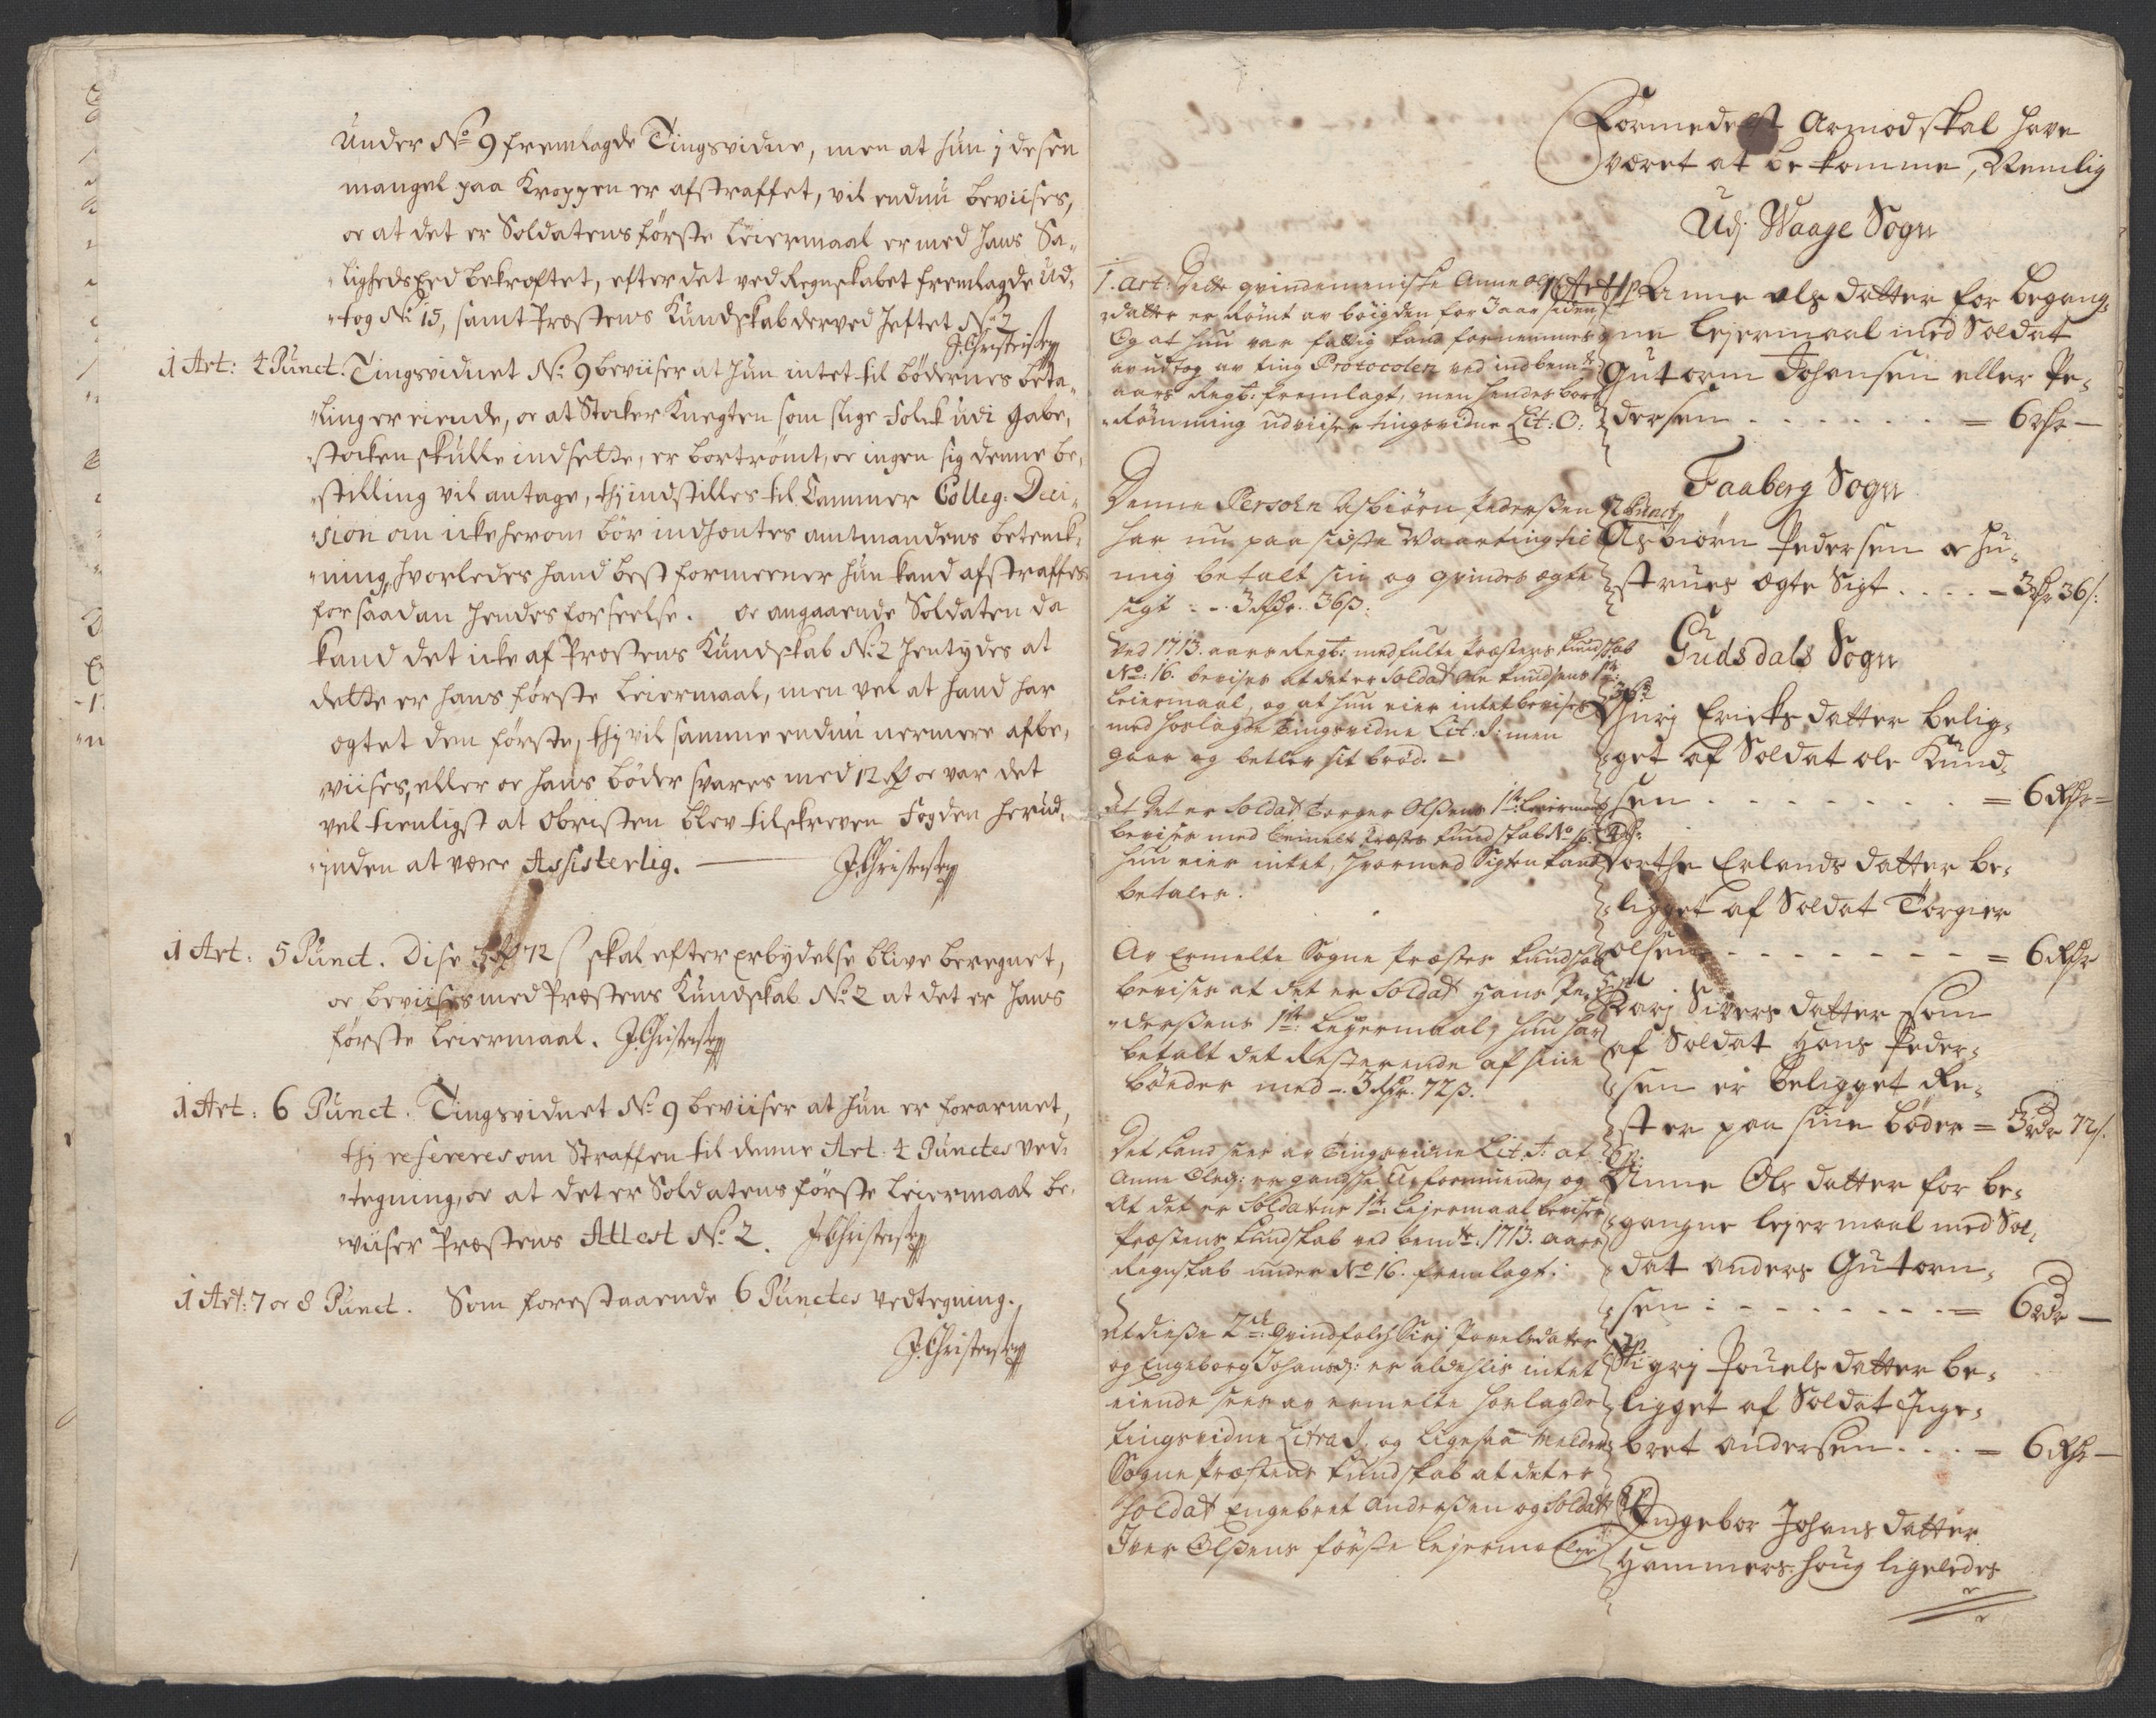 Under No 9 fremlagde Tingsvidne, men at hun i desen
mangel paa Kroppen er afstraffet, vil endnu beviises,
oc at det er Soldatens første Leiermaal er med hans Sa-
ligheds Eed bekreftet, efter det ved Regnskabet fremlagde Ud-
tog No 15, samt Præstens Kundskab derved heftet No 2
J. Christensen
1 Art: 4 Punct. Tingsvidnet No 9 beviiser at hun intet til bødernes beta-
ling er eiende, oc at Stocker Knegten som slige Folck udi gabe-
stocken skulle indsette, er bortrømt, oc ingen sig denne be-
stilling vil antage, thj indstilles til Cammer Colleg: Deci-
sion om icke herom bør indhentes amtmandens betenk-
ning, hvorledes hand best formeener hun kand afstraffes
for saadan hendes forseelse. oc angaaende Soldaten da
kand det icke af Præstens Kundskab No 2 hentydes at
dette er hans første Leiermaal, men vel at hand har
ægtet den første, thj vil samme endnu nermere afbe-
viises, eller oc hans bøder svares med 12 Rdr oc var det
vel tienligst at Obristen blev tilskreven Fogden herud-
inden at være Assisterlig. J. Christensen
1 Art: 5 Punct. Dise 3 Rdr 72 s skal efter erbydelse blive beregnet,
oc beviises med Præstens Kundskab No 2 at det er hans
første Leiermaal. J. Christensen
1 Art: 6 Punct. Tingsvidnet No 9 beviiser at hun er forarmet,
thj refereres om Straffen til denne Art. 4 Punctes ved-
tegning, oc at det er Soldatens første Leiermaal be-
viiser Præstens Attest No 2. J. Christensen
1 Art: 7 oc 8 Punct. Som forestaaende 6 Punctes vedtegning.
J. Christensen
Formedelst Armod skal have
været at bekomme, Nemlig
Udj Waage Sogn
1. Art: Dette qvindemeniske Anne
datter er Rømt av bøigden for 3 aar siden
Og at hun var fattig kand fornemmes
av udtog av ting Protocolen ved indbemte
aars Regb: fremlagt, men hendes bort
Rømming udviiser tingsvidne Lit: O:
1 Art 1 p Anne Olsdatter for begang-
ne lejermaal med Soldat
Gutorm Johansen eller Pe-
dersen = 6 Rdr -
Faaberg Sogn
Denne Persohn Asbiørn Pederssen
har nu paa sidste Waarting til
mig betalt sin og qvindes ægte
sigt :-. 3 Rdr. 36 s:
2 Punct
Asbiørn Pedersen oc Hu-
strues ægte Sigt - 3 Rdr 36 s:
Gudsdals Sogn
Ved 1713. aars Regb: medfulte Præsters kundskab
No: 16. bevises at det er Soldat Ole Knudsens 1te:
Leiermaal, og at hun eier intet bevises
med hoslagde tingsvidne Lit: men
gaar og betler sit brød. -
3 p
Gurj Ericksdatter belig-
get af Soldat Ole Knud-
sen = 6 Rdr =
At det er Soldat Torger Olssens 1te: Leiermaal
bevises med Præstes kundskab No 16
hun eier intet, hvormed Sigten kand
betales.
4 p:
Dorthe Erlandsdatter be-
ligget af Soldat Torgier
Olsen = 6 Rdr
Av Ermelte Sogne Præstes kundskab
bevises at det er Soldat Hans Pe-
derssens 1te: Lejermaal, hun har
betalt det Resterende af sine
bønder med -. 3 Rdr. 72 s.
5 p
Karj Siversdatter som
af Soldat Hans Peder-
sen er beligget Re-
ster paa sine bøder = 3 Rdr 72 s.
Det kand sees av tingsvidne Lit: at
Anne Olsd: er gandske Uformuende og
At det er Soldatens 1te: Lejermaal beviser
Præstens kundskab ved bemte: 1713. aars
Regnskab under No 16. fremlagt:
6 p:
Anne Olsdatter for be-
gangne lejermaal med Sol-
dat Anders Gutorm-
sen = 6 Rdr -
At disse 2de: qvindfolch Sirj Povelsdatter
og Engeborg Johansd: er aldehlis intet
eiende sees av ermelte hoslagde
tingsvidne Litra, og ligesaa melder
Sogne Præstens kundskab at det er
Soldat Engebret Anderssen og Soldat
Iver Olssens første lejermaal
7 p
Sigrj Pouelsdatter be-
ligget af Soldat Inge-
bret Andersen = 6 Rdr -
8 p
Engebor Johansdatter
Hammershoug ligeledes